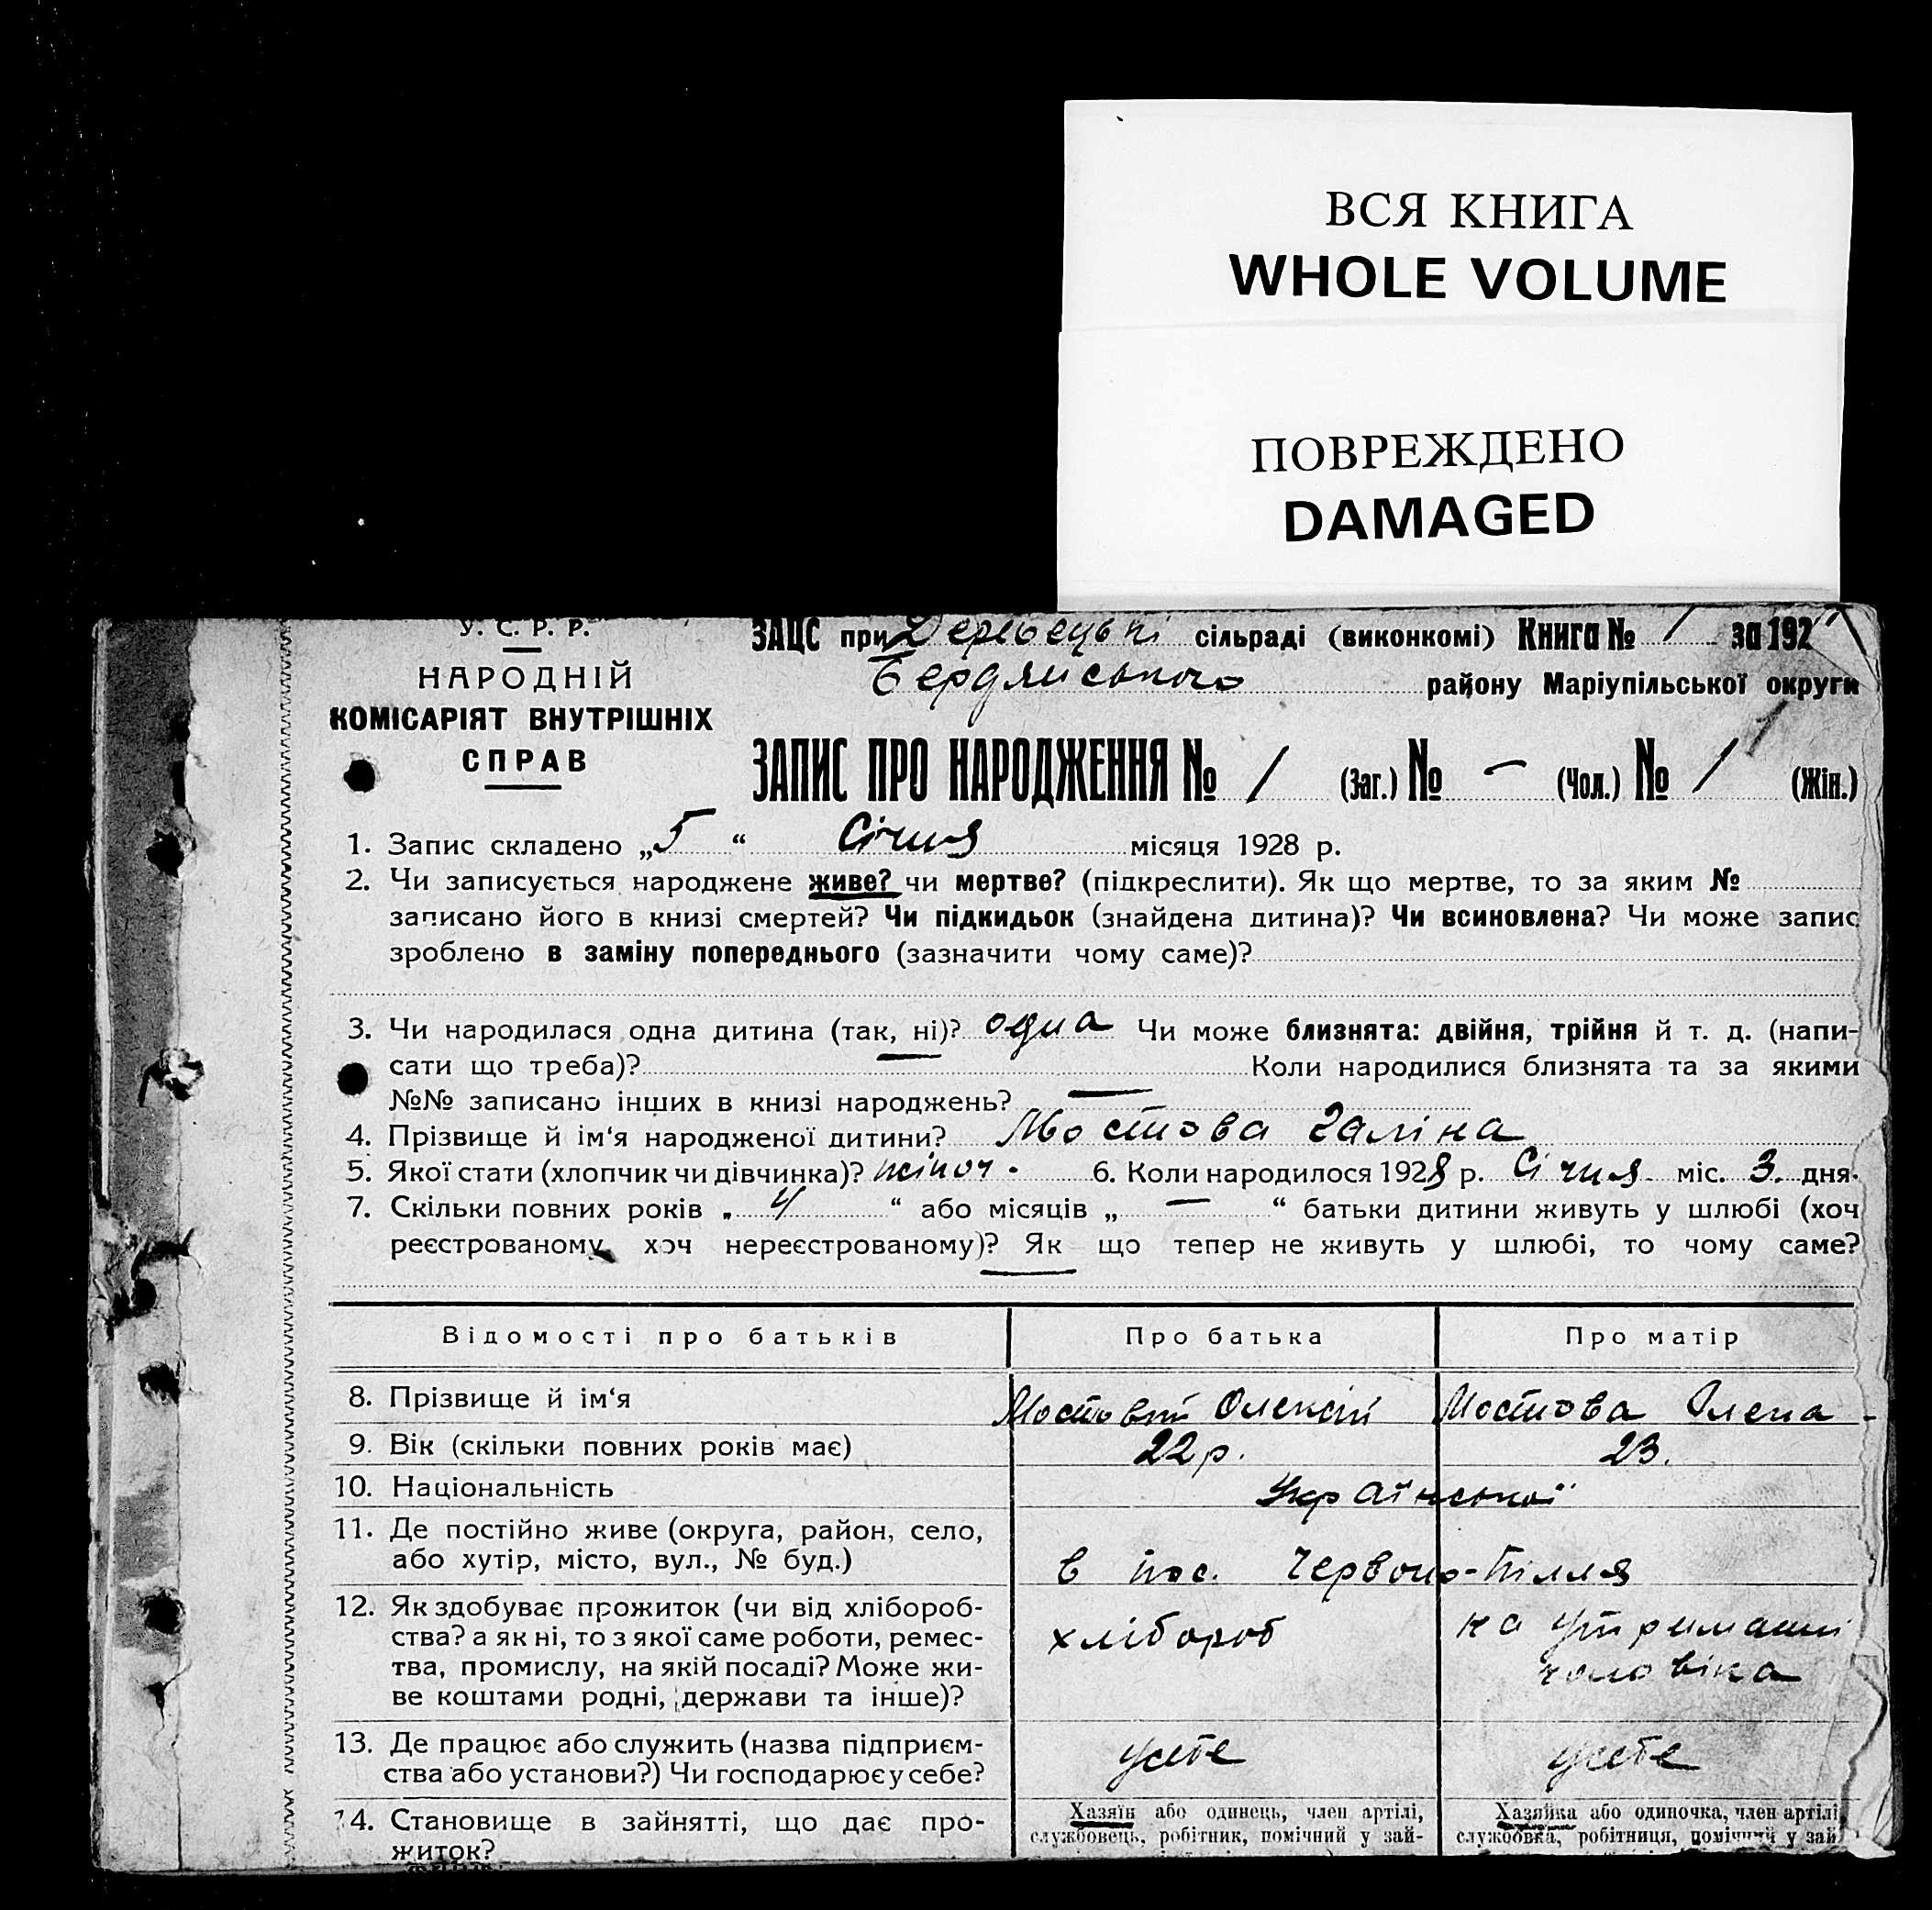 ВСЯ КНИГА
WHOLE VOLUME
ПОВРЕЖДЕНО
DAMAGED
У. С. Р. Р.
НАРОДНІЙ
КОМІСАРІЯТ ВНУТРІШНІХ
СПРАВ
ЗАЦС при сільраді (виконкомі) Книга № 1 за 192
Бердянського району Маріупільської округи
ЗАПИС ПРО НАРОДЖЕННЯ № 1 (Заг.) № – (Чол.) № 1 (Жін.)
1. Запис складено „5“ Січня місяця 1928 р.
2. Чи записується народжене живе? чи мертве? (підкреслити). Як що мертве, то за яким №
записано його в книзі смертей? Чи підкидьок (знайдена дитина)? Чи всиновлена? Чи може запис
зроблено в заміну попереднього (зазначити чому саме)?
3. Чи народилася одна дитина (так, ні)? одна Чи може близнята: двійня, трійня й т. д. (напи-
сати що треба)? Коли народилися близнята та за якими
№№ записано інших в книзі народжень? —
4. Прізвище й ім‘я народженої дитини? Мостова Галіна
5. Якої стати (хлопчик чи дівчинка)? жіноч. 6. Коли народилося 1928 р. Січня міс. 3. дня.
7. Скільки повних років „ 4 “ або місяців „ — “ батьки дитини живуть у шлюбі (хоч
реєстрованому, хоч нереєстрованому)? Як що тепер не живуть у шлюбі, то чому саме?
Відомості про батьків Про батька Про матір
8. Прізвище й ім‘я Мостовий Олексій Мостова Олена
9. Вік (скільки повних років має) 22 р. 23.
10. Національність Української
11. Де постійно живе (округа, район, село,
або хутір, місто, вул., № буд.) в пос. Червоно-Пілля
12. Як здобуває прожиток (чи від хлібороб-
ства? а як ні, то з якої саме роботи, ремес-
тва, промислу, на якій посаді? Може жи-
ве коштами родні, держави та інше)?
хлібороб на утриманні
чоловіка
13. Де працює або служить (назва підприєм-
ства або установи?) Чи господарює у себе? у себе у себе
14. Становище в зайнятті, що дає про-
житок?
Хазяїн або одинець, член артілі,
службовець, робітник, помічний у зай-
Хазяйка або одиночка, член артілі,
службовка, робітниця, помічний у зай